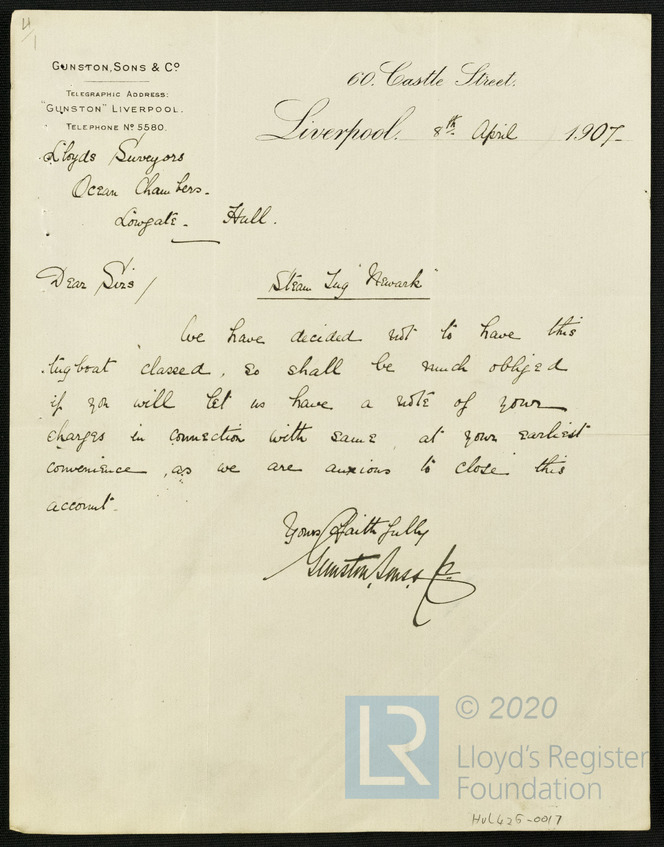 4/1
GUNSTON, SONS & Co
TELEGRAPHIC ADDRESS:
"GUNSTON" LIVERPOOL.
TELEPHONE No 5580.
60. Castle Street.
Liverpool. 8th April 1907-
Lloyds Surveyors
Ocean Chambers.
Lowgate. Hull.
Dear Sirs/ Steam Tug "Newark"
We have decided not to have this
tugboat classed, so shall be much obliged
if you will let us have a note of your
charges in connection with same, at your earliest
convenience, as we are anxious to close this
account.
Yours Faithfully
Gunston, Sons & Co.
LR
© 2020
Lloyd's Register
Foundation
HUL425-0017